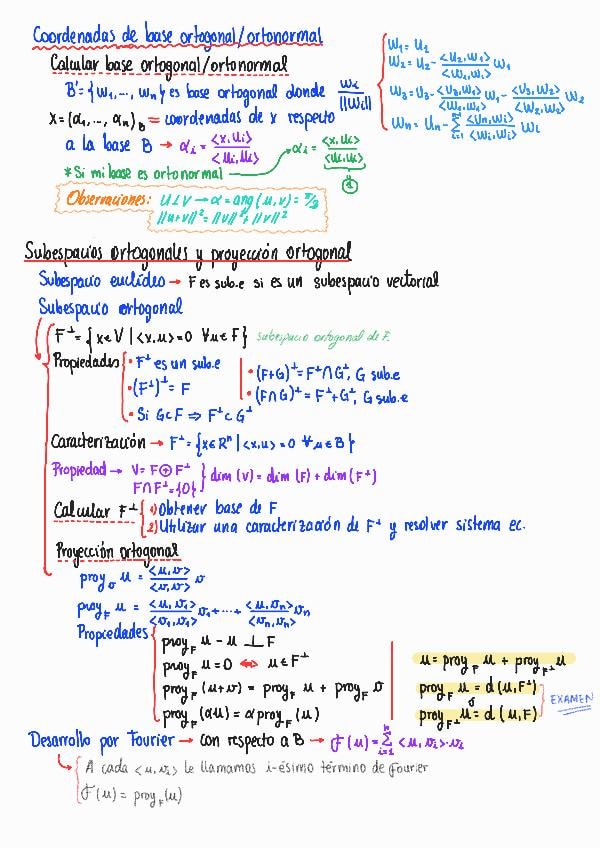 Coordenadas de base ortogonal/ortonormal
Calcular base ortogonal/ortonormal
B'={w₁,..., wₙ} es base ortogonal donde wᵢ/||wᵢ||
W₁ = U₁
W₂ = U₂ - <U₂,W₁>/<W₁,W₁> W₁
W₃ = U₃ - <U₃,W₁>/<W₁,W₁> W₁ - <U₃,W₂>/<W₂,W₂> W₂
Wₙ = Uₙ - Σᵢ₌₁ⁿ⁻¹ <Uₙ,Wᵢ>/<Wᵢ,Wᵢ> Wᵢ
x=(α₁,..., αₙ)_B = coordenadas de x respecto
a la base B → αᵢ = <x,uᵢ>/<uᵢ,uᵢ>
* Si mi base es ortonormal → αᵢ = <x,uᵢ>/<uᵢ,uᵢ>
1
Observaciones: U⊥V → α = ang(u,v) = π/3
||u+v||² = ||v||² + ||v||²
Subespacios ortogonales y proyección ortogonal
Subespacio euclídeo → F es sub.e si es un subespacio vectorial
Subespacio ortogonal
F⊥ = {x∈V | <x,u> = 0 ∀u∈F} subespacio ortogonal de F.
Propiedades
• F⊥ es un sub.e
• (F⊥)⊥ = F
• Si G⊂F ⇒ F⊥⊂G⊥
• (F+G)⊥ = F⊥∩G⊥, G sub.e
• (F∩G)⊥ = F⊥+G⊥, G sub.e
Caracterización → F⊥ = {x∈Rⁿ | <x,u> = 0 ∀u∈B}
Propiedad → V = F⊕F⊥
F∩F⊥ = {0} } dim (V) = dim (F) + dim (F⊥)
Calcular F⊥ { 1) Obtener base de F
2) Utilizar una caracterización de F⊥ y resolver sistema ec.
Proyección ortogonal
proy_v u = <u,v>/<v,v> v
proy_F u = <u,v₁>/<v₁,v₁> v₁ + ... + <u,vₙ>/<vₙ,vₙ> vₙ
Propiedades
proy_F u - u ⊥ F
proy_F u = 0 ⇔ u∈F⊥
proy_F (u+v) = proy_F u + proy_F v
proy_F (αu) = α proy_F (u)
u = proy_F u + proy_F⊥ u
proy_F u = d (u,F⊥)
o
proy_F⊥ u = d (u,F)
EXAMEN
Desarrollo por Fourier → con respecto a B → F(u) = Σᵢ₌₁ⁿ <u,vᵢ>·vᵢ
A cada <u,vᵢ> le llamamos i-ésimo término de Fourier
F(u) = proy_F (u)